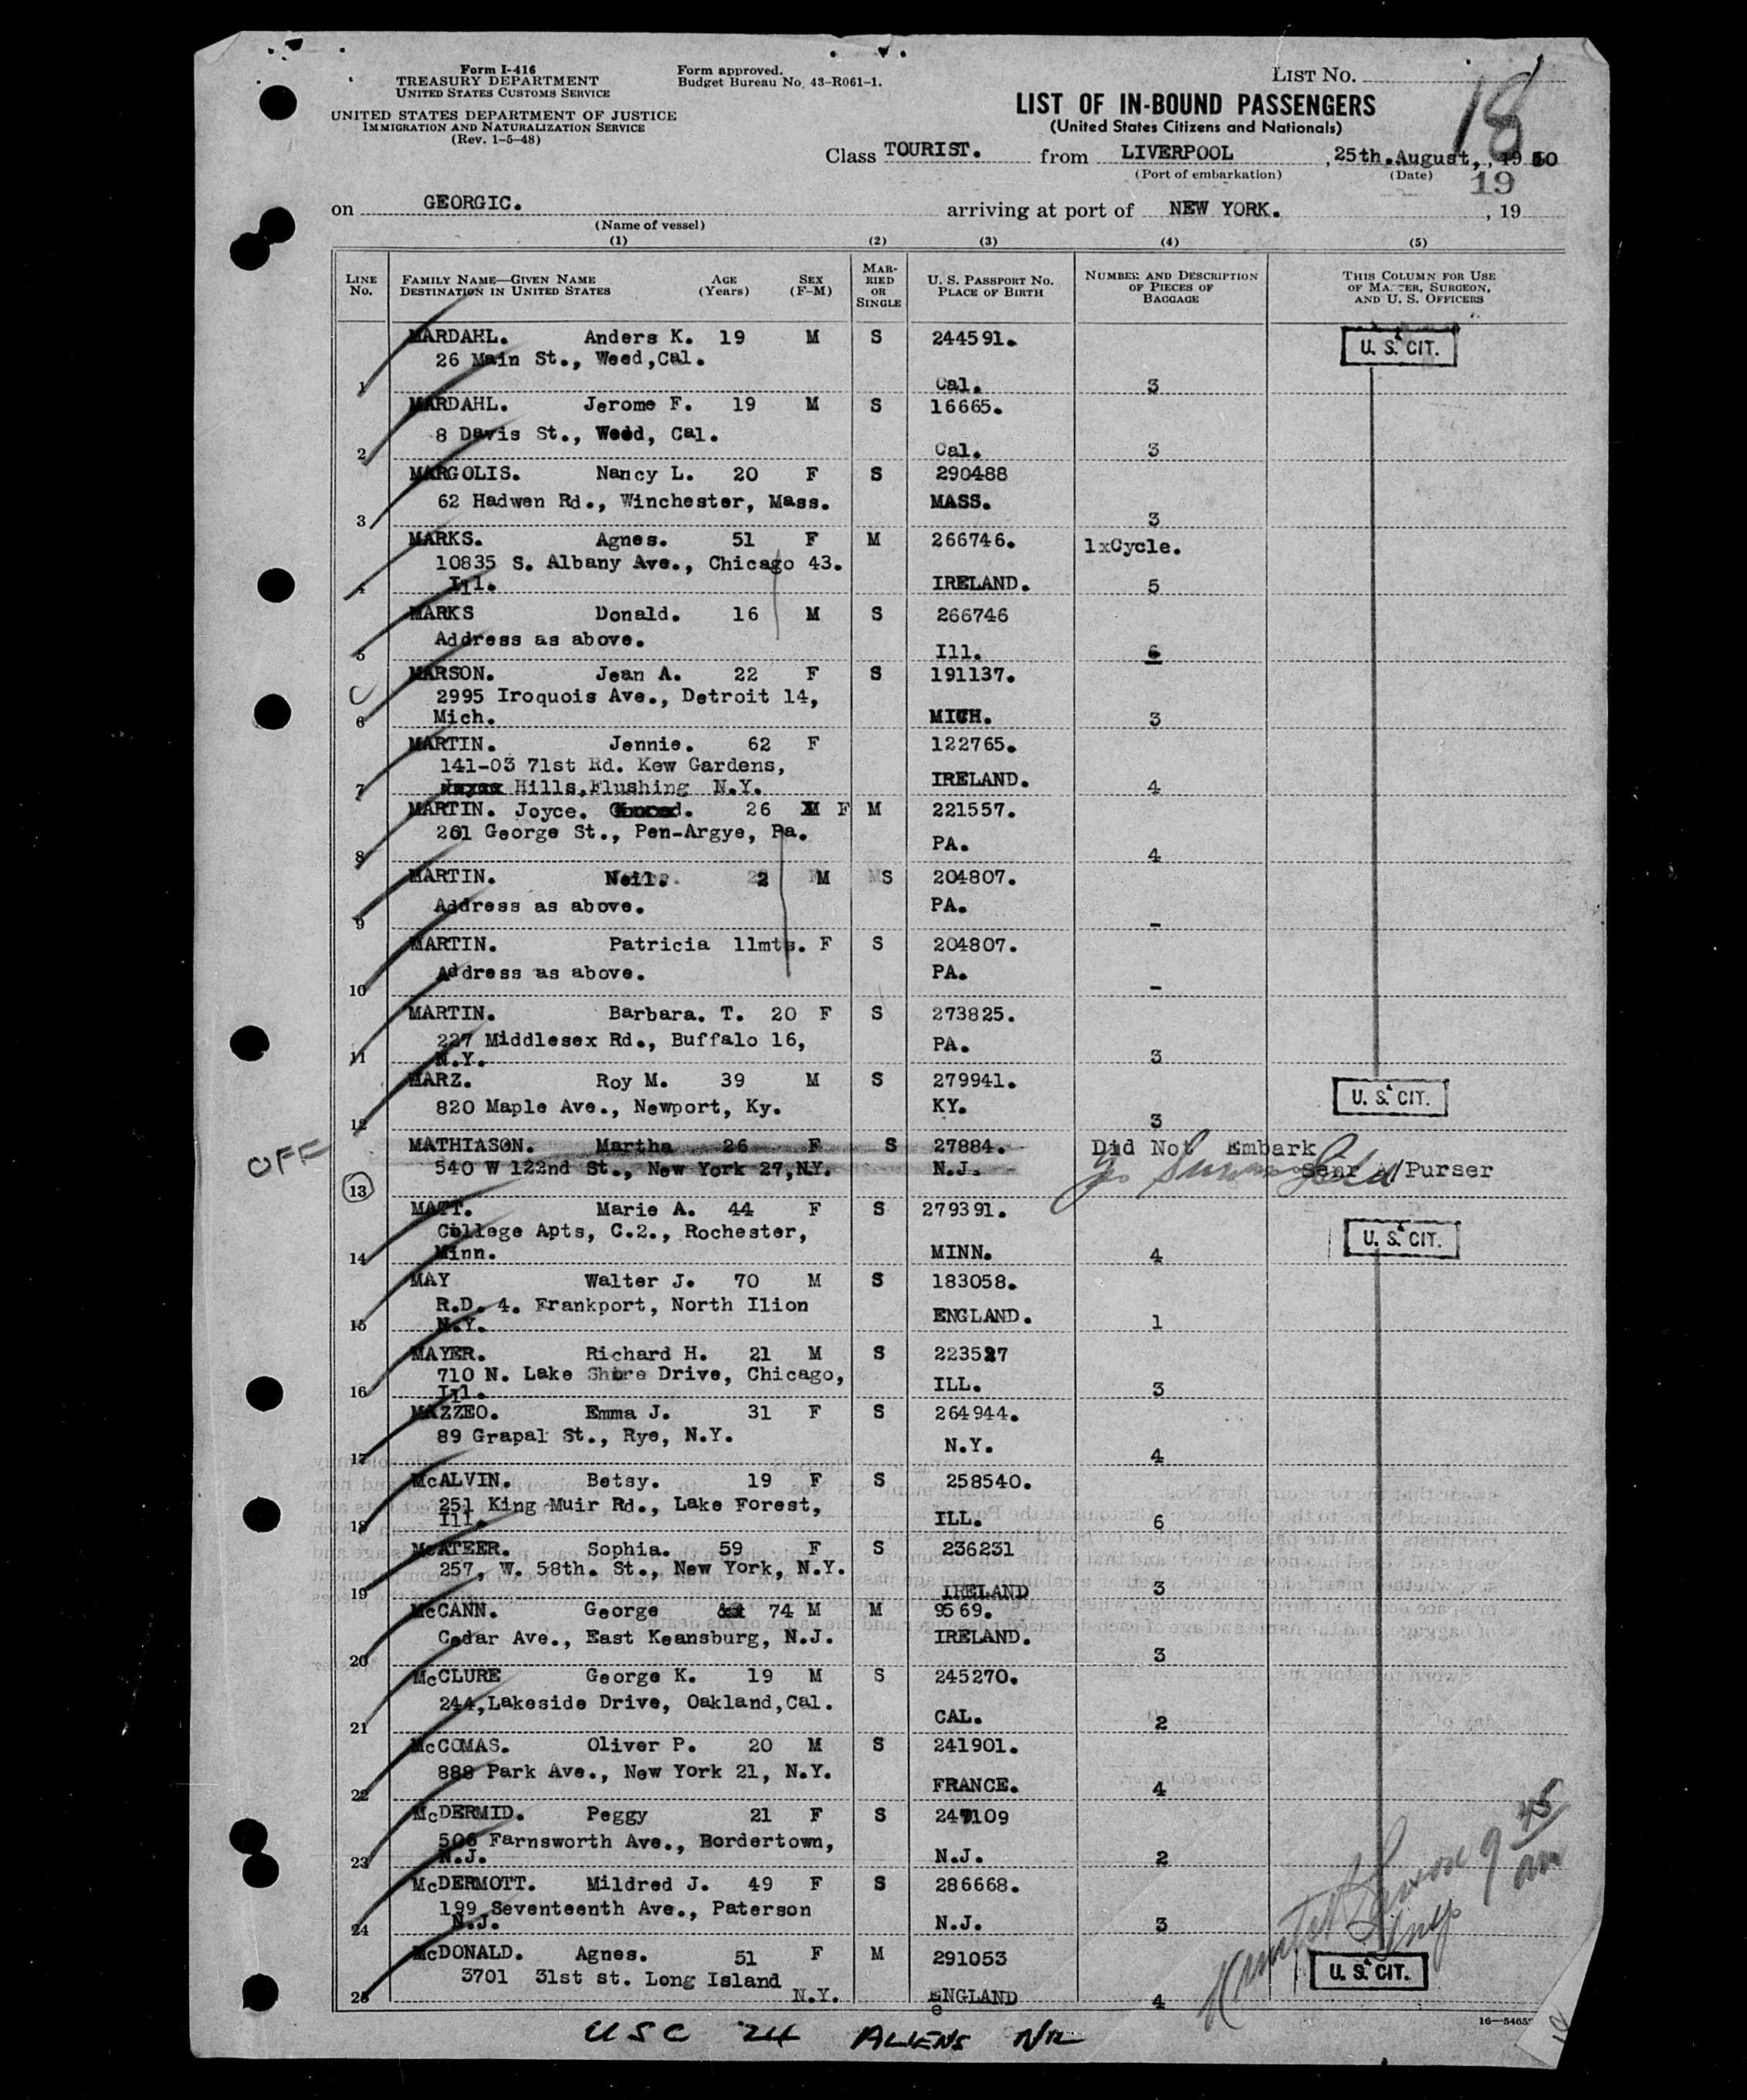 Form I-416
TREASURY DEPARTMENT
UNITED STATES CUSTOMS SERVICE
UNITED STATES DEPARTMENT OF JUSTICE
IMMIGRATION AND NATURALIZATION SERVICE
(Rev. 1-5-48)
Form approved.
Budget Bureau No. 43-R061-1.
LIST No.
18
LIST OF IN-BOUND PASSENGERS
(United States Citizens and Nationals)
Class TOURIST. from LIVERPOOL , 25th. August, , 19 50
(Port of embarkation) (Date)
19
on GEORGIC. arriving at port of NEW YORK. , 19
(Name of vessel)
(1) (2) (3) (4) (5)
LINE No. FAMILY NAME—GIVEN NAME DESTINATION IN UNITED STATES AGE (Years) SEX (F-M) MARRIED OR SINGLE U. S. PASSPORT No. PLACE OF BIRTH NUMBER AND DESCRIPTION OF PIECES OF BAGGAGE THIS COLUMN FOR USE OF MASTER, SURGEON, AND U. S. OFFICERS
MARDAHL. Anders K. 19 M S 244591. U. S. CIT.
26 Main St., Weed,Cal.
1 Cal. 3
MARDAHL. Jerome F. 19 M S 16665.
8 Davis St., Weed, Cal.
2 Cal. 3
MARGOLIS. Nancy L. 20 F S 290488
62 Hadwen Rd., Winchester, Mass. MASS.
3 3
MARKS. Agnes. 51 F M 266746. 1xCycle.
10835 S. Albany Ave., Chicago 43.
4 Ill. IRELAND. 5
MARKS Donald. 16 M S 266746
Address as above.
5 Ill. 6
MARSON. Jean A. 22 F S 191137.
2995 Iroquois Ave., Detroit 14,
6 Mich. MICH. 3
MARTIN. Jennie. 62 F 122765.
141-03 71st Rd. Kew Gardens,
7 Hills,Flushing N.Y. IRELAND. 4
MARTIN. Joyce. 26 F M 221557.
201 George St., Pen-Argye, Pa. PA.
8 4
MARTIN. Neil. 2 M S 204807.
Address as above. PA.
9 -
MARTIN. Patricia 11mts. F S 204807.
Address as above. PA.
10 -
MARTIN. Barbara. T. 20 F S 273825.
227 Middlesex Rd., Buffalo 16, PA.
11 N.Y. 3
MARZ. Roy M. 39 M S 279941. U. S. CIT.
820 Maple Ave., Newport, Ky. KY.
12 3
OFF
MATHIASON. Martha 26 F S 27884. Did Not Embark
540 W 122nd St., New York 27,N.Y. N.J. Senr A/Purser
13
MATT. Marie A. 44 F S 279391. U. S. CIT.
College Apts, C.2., Rochester,
14 Minn. MINN. 4
MAY Walter J. 70 M S 183058.
R.D. 4. Frankport, North Ilion
15 N.Y. ENGLAND. 1
MAYER. Richard H. 21 M S 223527
710 N. Lake Shore Drive, Chicago,
16 Ill. ILL. 3
MAZZEO. Emma J. 31 F S 264944.
89 Grapal St., Rye, N.Y. N.Y.
17 4
McALVIN. Betsy. 19 F S 258540.
251 King Muir Rd., Lake Forest,
18 Ill. ILL. 6
McATEER. Sophia. 59 F S 236231
257, W. 58th. St., New York, N.Y.
19 IRELAND 3
McCANN. George 74 M M 9569.
Cedar Ave., East Keansburg, N.J. IRELAND.
20 3
McCLURE George K. 19 M S 245270.
244,Lakeside Drive, Oakland,Cal. CAL.
21 2
McCOMAS. Oliver P. 20 M S 241901.
888 Park Ave., New York 21, N.Y. FRANCE.
22 4
McDERMID. Peggy 21 F S 247109
506 Farnsworth Ave., Bordertown,
23 N.J. N.J. 2
McDERMOTT. Mildred J. 49 F S 286668.
199 Seventeenth Ave., Paterson
24 N.J. N.J. 3
9 45 am
McDONALD. Agnes. 51 F M 291053 U. S. CIT.
3701 31st st. Long Island
25 N.Y. ENGLAND 4
USC 24 ALIENS NIL